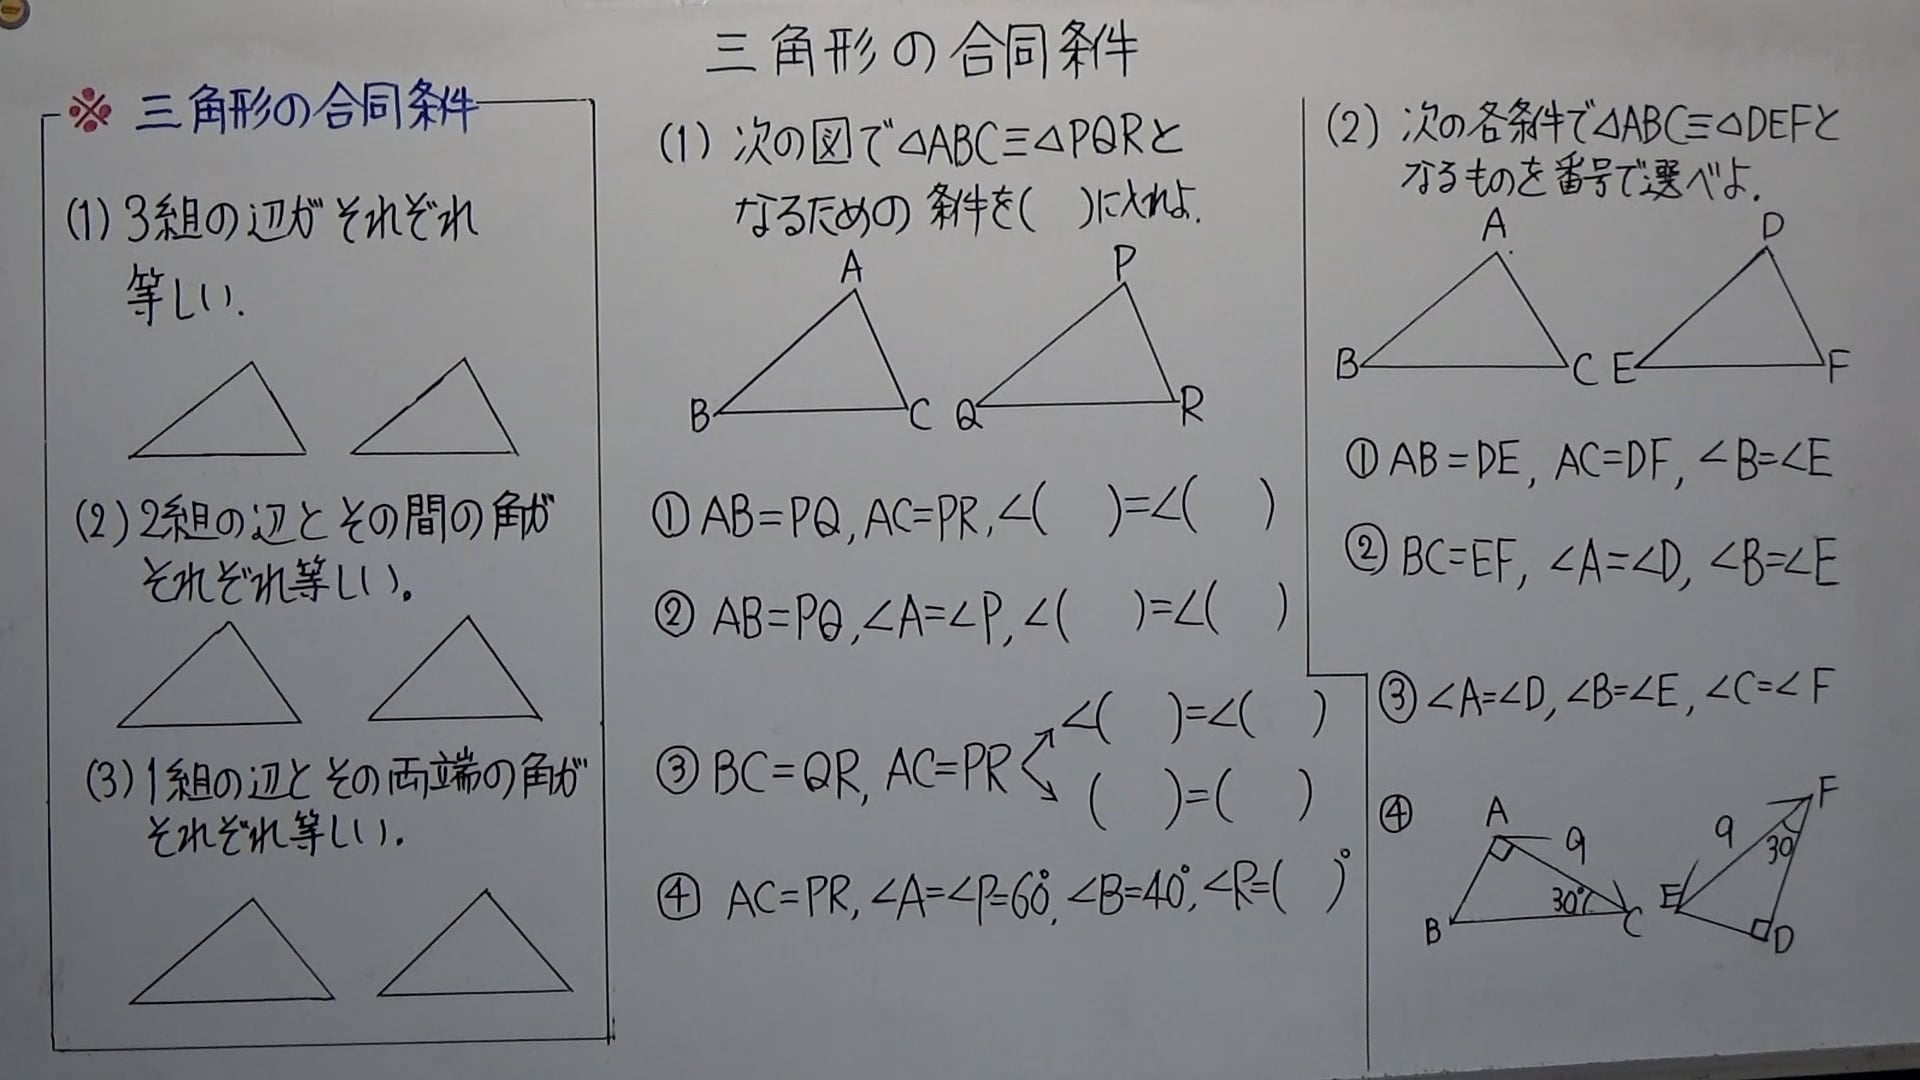 三角形の合同条件
※ 三角形の合同条件
(1) 3組の辺がそれぞれ
等しい.
(2) 2組の辺とその間の角が
それぞれ等しい。
(3) 1組の辺とその両端の角が
それぞれ等しい.
(1) 次の図で△ABC≡△PQRと
なるための条件を( )に入れよ.
A
B
C
P
Q
R
① AB=PQ, AC=PR, ∠( )=∠( )
② AB=PQ, ∠A=∠P, ∠( )=∠( )
③ BC=QR, AC=PR
∠( )=∠( )
( )=( )
④ AC=PR, ∠A=∠P=60°, ∠B=40°, ∠R=( )°
(2) 次の各条件で△ABC≡△DEFと
なるものを番号で選べよ.
A
B
C
D
E
F
① AB=DE, AC=DF, ∠B=∠E
② BC=EF, ∠A=∠D, ∠B=∠E
③ ∠A=∠D, ∠B=∠E, ∠C=∠F
④
A
9
30°
B
C
F
9
30
E
D